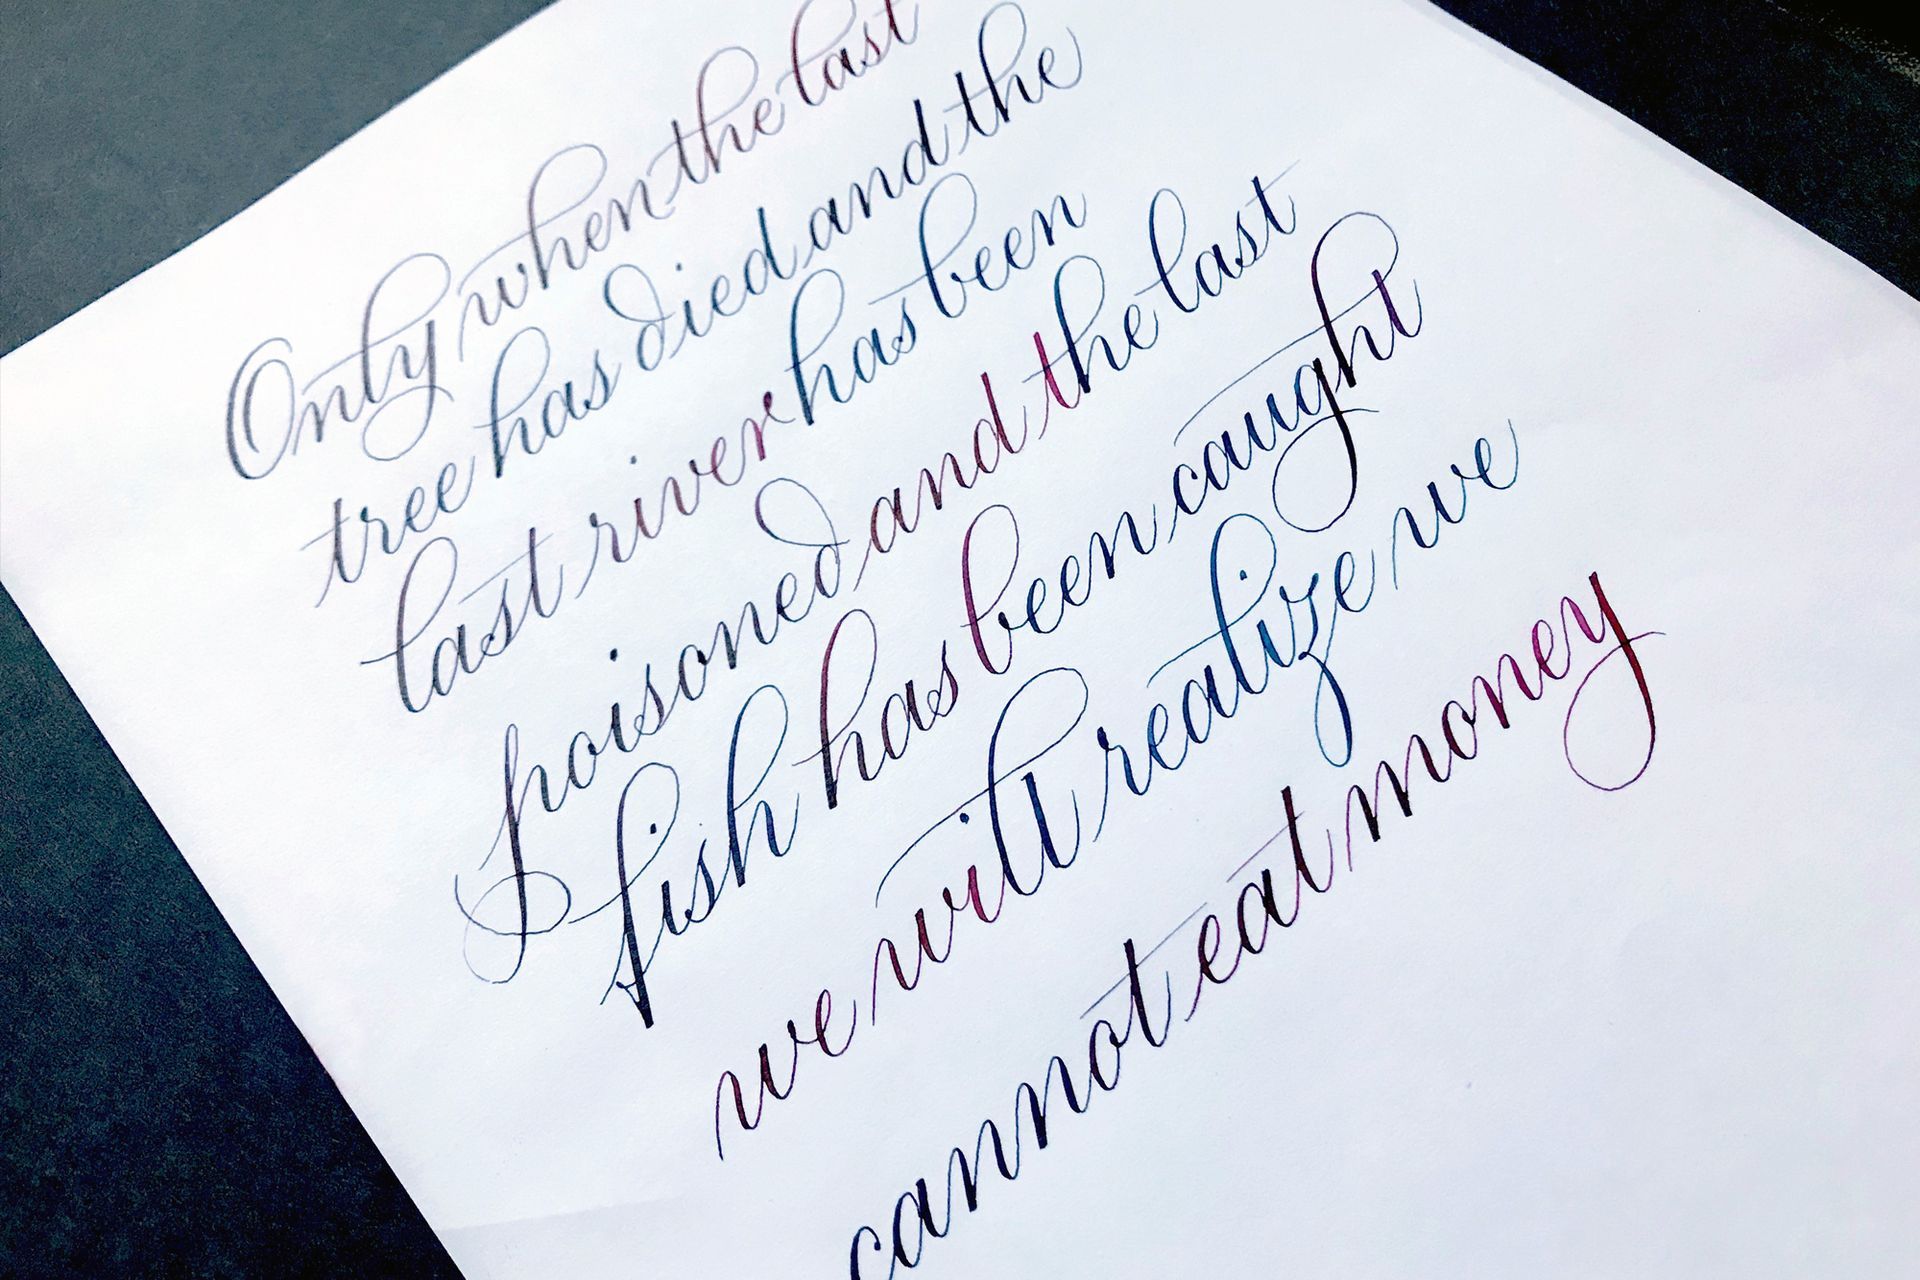 Only when the last
tree has died and the
last river has been
poisoned and the last
fish has been caught
we will realize we
cannot eat money